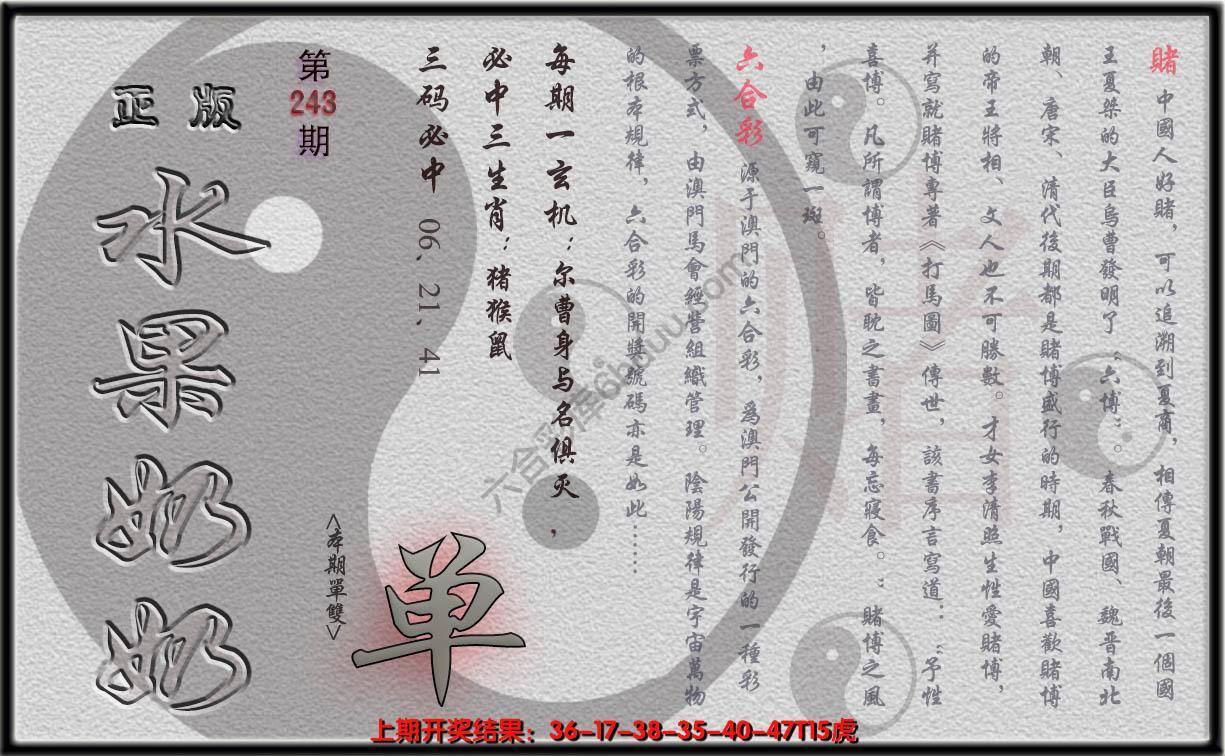 賭 中國人好賭，可以追溯到夏商，相傳夏朝最後一個國
王夏桀的大臣烏曹發明了“六博”。春秋戰國、魏晉南北
朝、唐宋、清代後期都是賭博盛行的時期，中國喜歡賭博
的帝王將相、文人也不可勝數。才女李清照生性愛賭博，
并寫就賭博專著《打馬圖》傳世，該書序言寫道：“予性
喜博。凡所謂博者，皆耽之書畫，每忘寢食。”賭博之風
，由此可窺一斑。
六合彩 源于澳門的六合彩，為澳門公開發行的一種彩
票方式，由澳門馬會經營組織管理。陰陽規律是宇宙萬物
的根本規律，六合彩的開獎號碼亦是如此……
每期一玄机：尔曹身与名俱灭，
必中三生肖：猪猴鼠
三码必中 06、21、41
第
243
期
正版
水果奶奶
<本期單雙>
单
赌
六合彩库6huuu.com
上期开奖结果：36-17-38-35-40-47T15虎